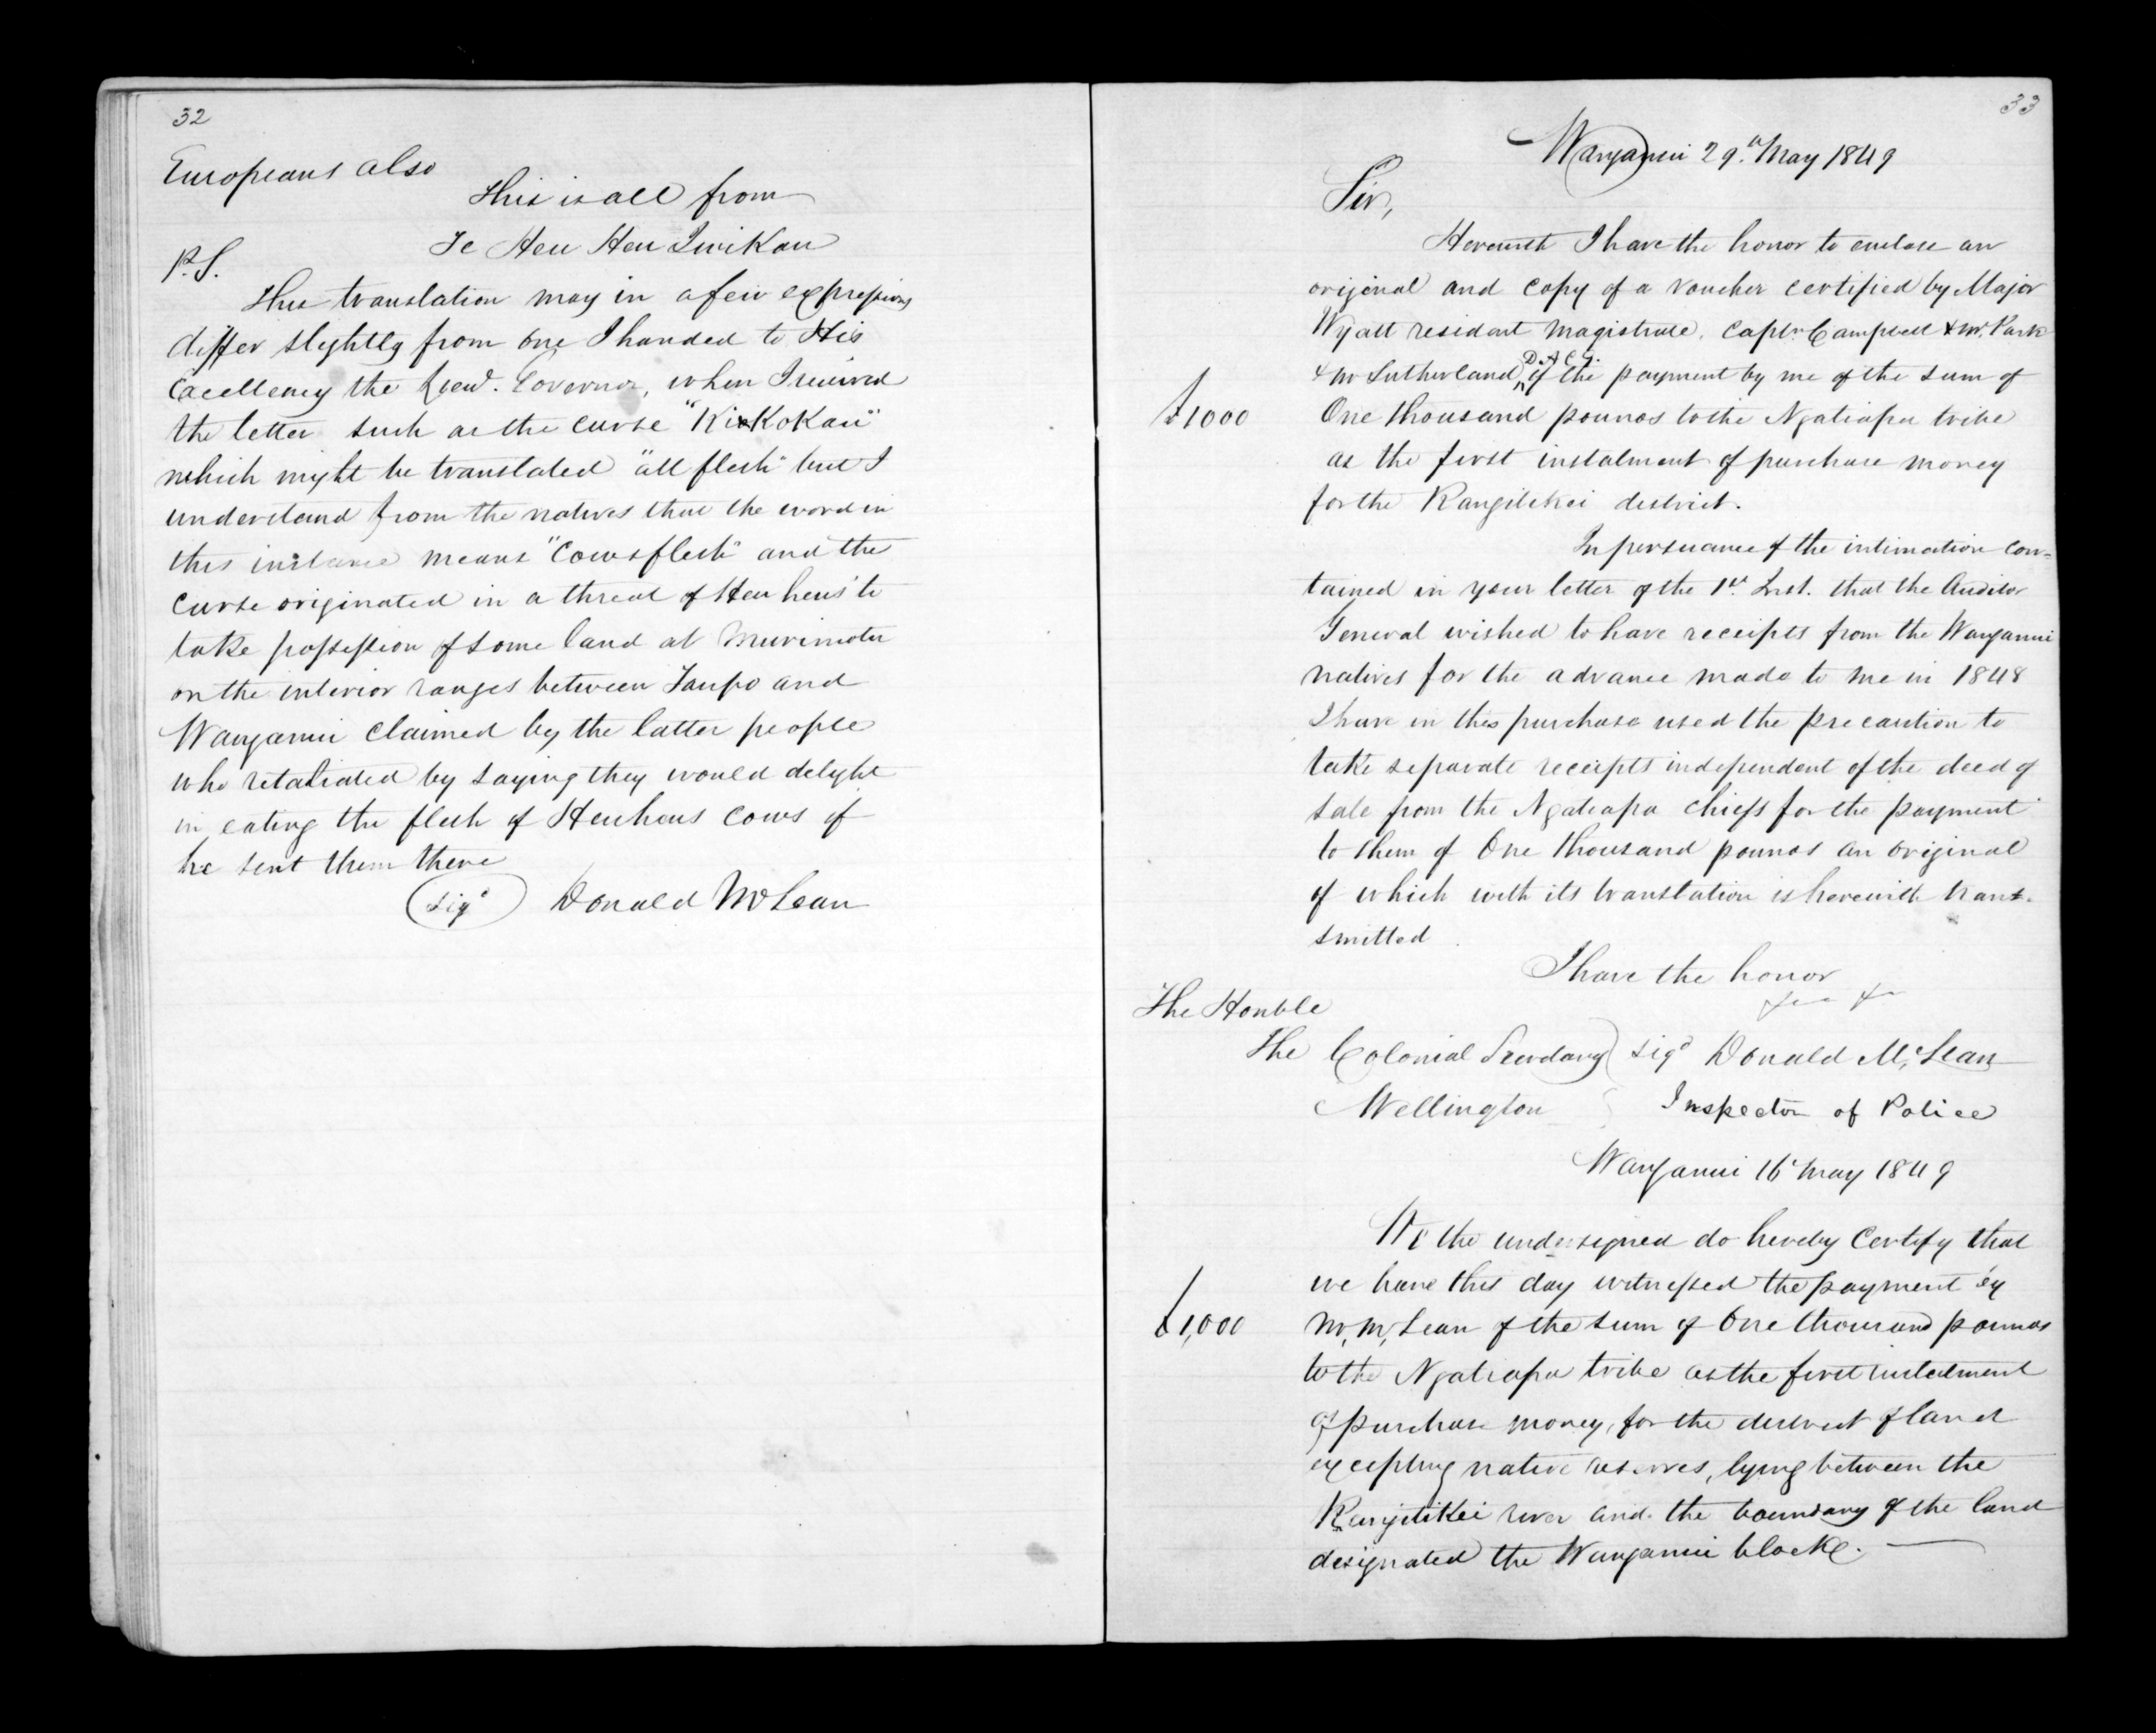 32
Europeans also
This is all from
Te Heu Heu Iwikau
P.S.
This translation may in a few expressions
differ slightly from one I handed to His
Excellency the Lieut. Governor, when I received
the letter such as the curse "Kikokau"
which might be translated "all flesh" but I
understand from the natives that the word in
this instance means "Cows flesh" and the
curse originated in a threat of Heuheu's to
take possession of some land at Murimotu
on the interior ranges between Taupo and
Wanganui claimed by the latter people
who retaliated by saying they would delight
in eating the flesh of Heuheus cows if
he sent them there
(sigd) Donald McLean
33
Wanganui 29th May 1849
Sir,
Herewith I have the honor to enclose an
original and copy of a voucher certified by Major
Wyatt resident Magistrate. Captn. Campbell & Mr. Park
& Mr Sutherland, D.A.C.G. of the payment by me of the sum of
£1000 One thousand pounds to the Ngatiapa tribe
as the first instalment of purchase money
for the Rangitikei district.
In persuance of the intimation con-
tained in your letter of the 1st. Inst. that the Auditor
General wished to have receipts from the Wanganui
natives for the advance made to me in 1848
I have in this purchase used the precaution to
take separate receipts independent of the deed of
sale from the Ngatiapa chiefs for the payment
to them of One thousand pounds an original
of which with its translation is herewith trans-
smitted
I have the honor
&c &c
The Honble
The Colonial Secretary) sigd Donald McLean
Wellington Inspector of Police
Wanganui 16 May 1849
We the undersigned do hereby Certify that
we have this day witnessed the payment by
£1,000 Mr McLean of the sum of One thousand pounds
to the Ngatiapa tribe as the first instalment
of purchase money, for the district of land
excepting native reserves, lying between the
Rangitikei river and the boundary of the land
designated the Wanganui block.